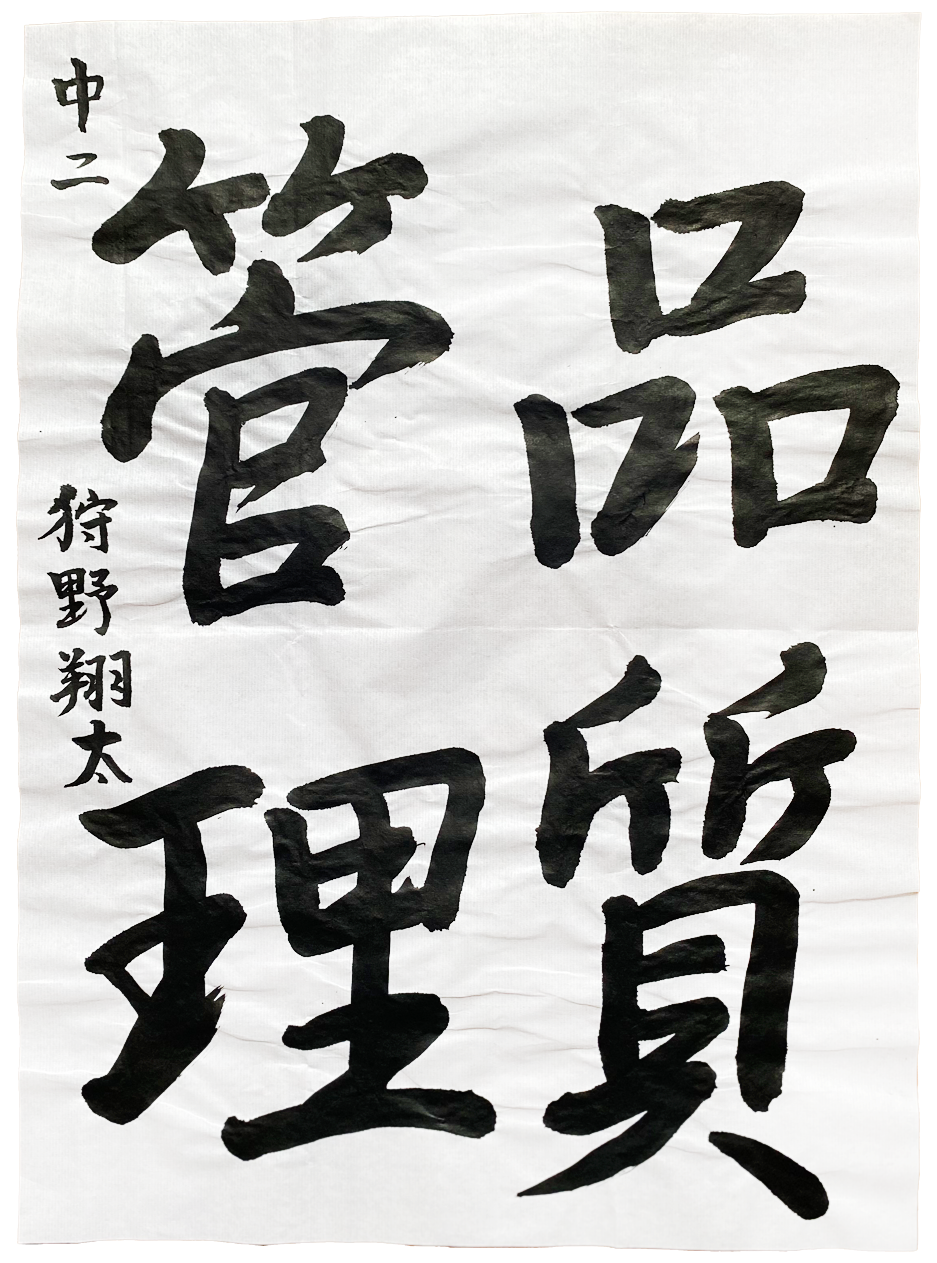 品質
管理
中二 狩野翔太